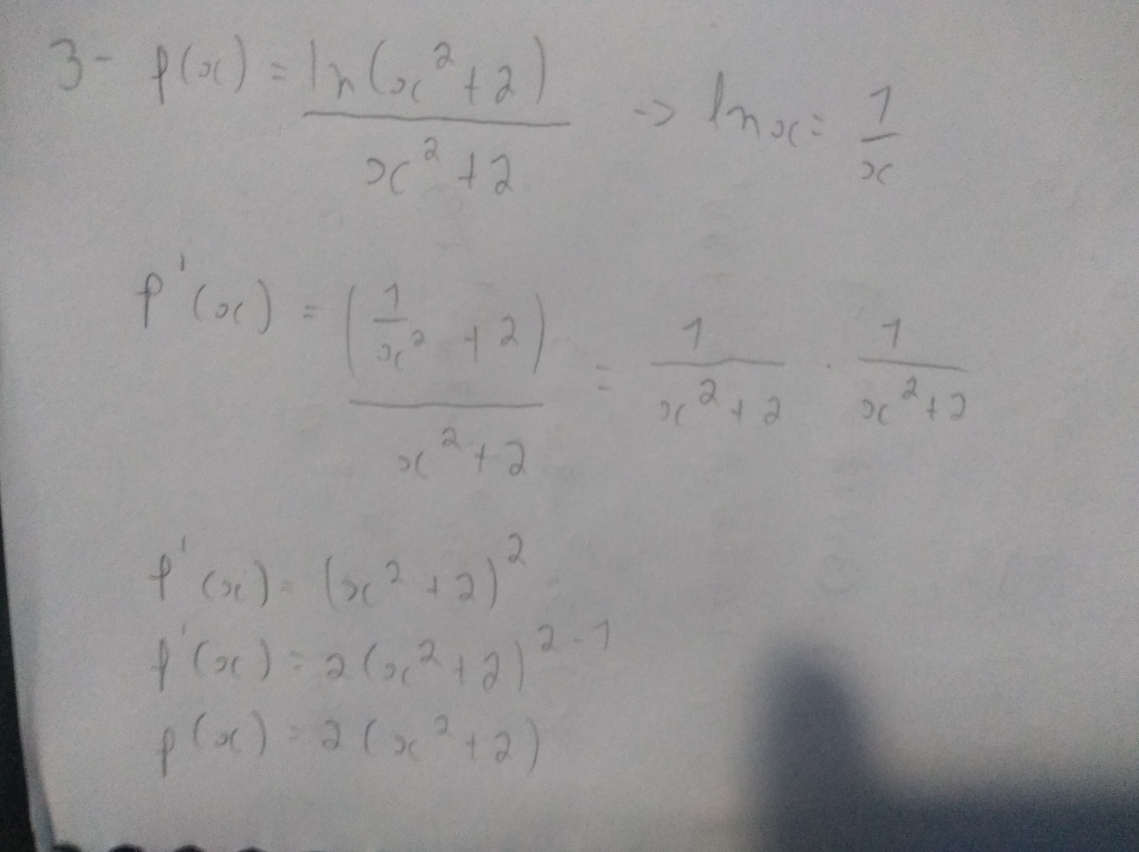 3- f(x) = ln(x²+2) / x²+2 -> ln x = 1/x
f'(x) = (1/x² + 2) / x²+2 = 1/x²+2 . 1/x²+2
f'(x) = (x²+2)²
f'(x) = 2(x²+2)²⁻¹
f(x) = 2(x²+2)